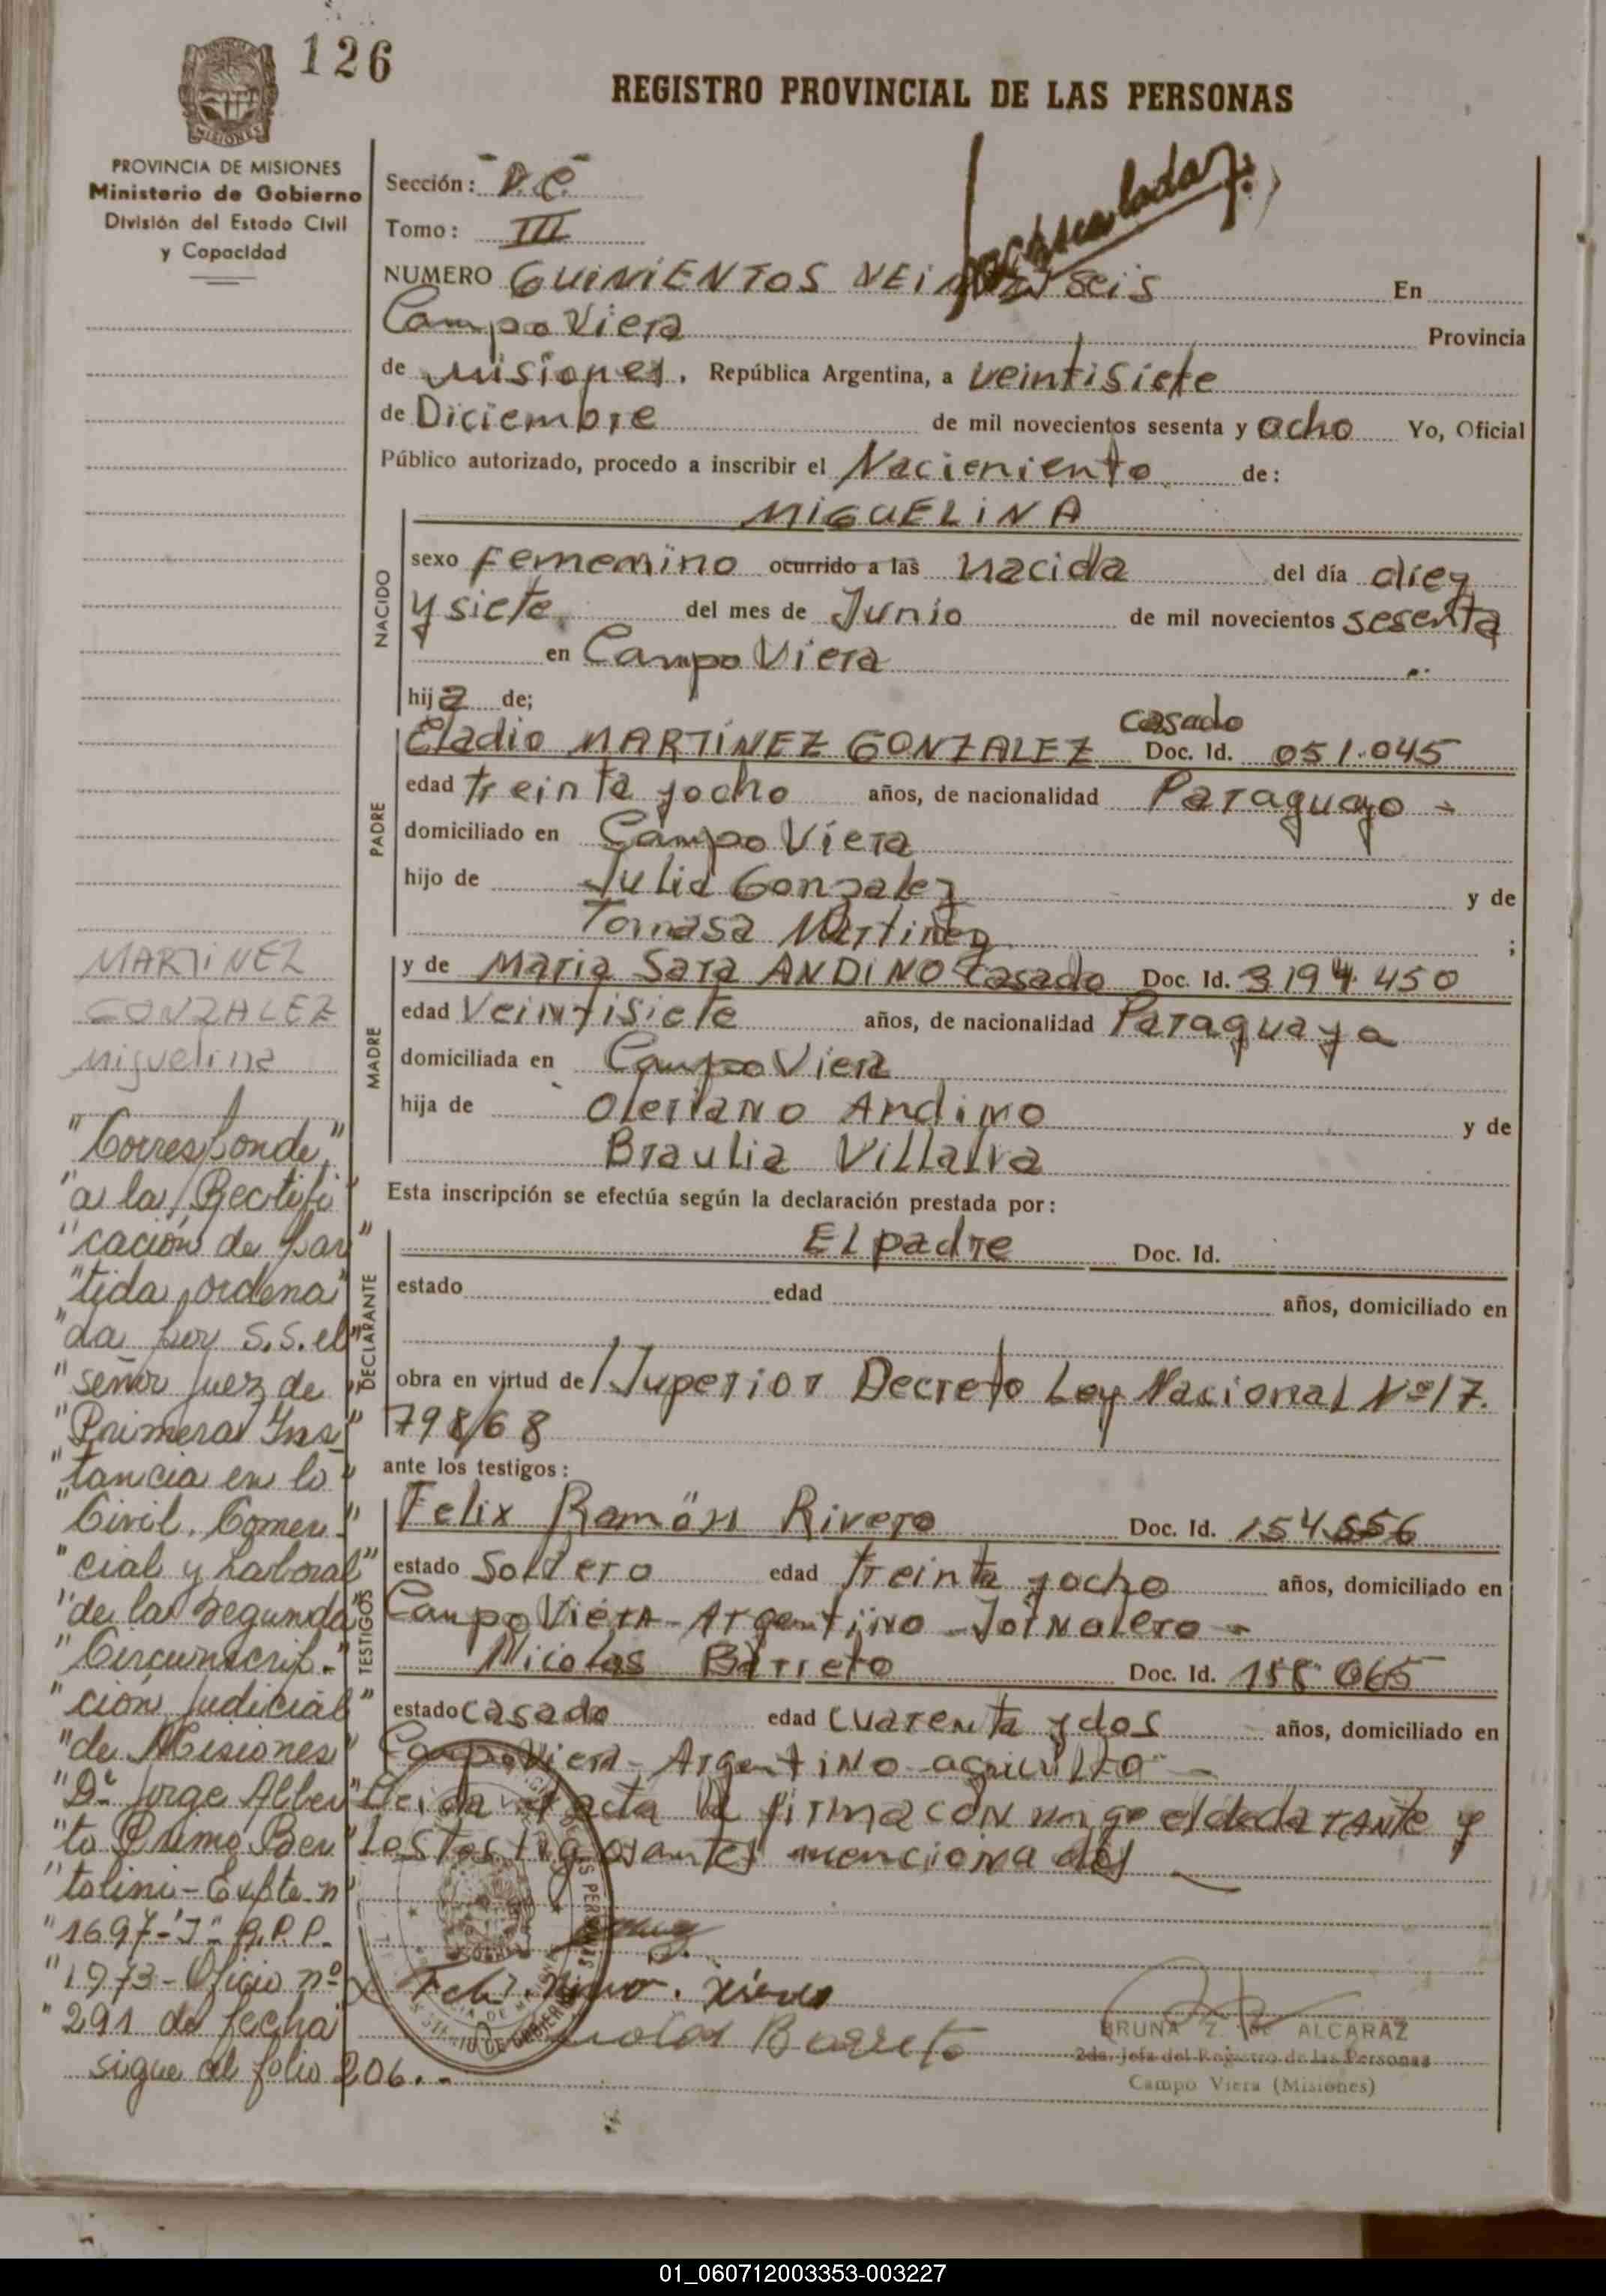 126
REGISTRO PROVINCIAL DE LAS PERSONAS
MISIONES
PROVINCIA DE MISIONES
Ministerio de Gobierno
División del Estado Civil
y Capacidad
Sección: D.C.
Tomo: III
NUMERO QUINIENTOS VEINTISEIS En
Campo Viera Provincia
de Misiones, República Argentina, a veintisiete
de Diciembre de mil novecientos sesenta y ocho Yo, Oficial
Público autorizado, procedo a inscribir el Nacieniento de:
MIGUELINA
NACIDO
sexo Fememino ocurrido a las nacida del día diez
y siete del mes de Junio de mil novecientos sesenta
en Campo Viera
hija de;
casado
Eladio MARTINEZ GONZALEZ Doc. Id. 051.045
PADRE
edad treinta yocho años, de nacionalidad Paraguayo -
domiciliado en Campo Viera
hijo de Julia Gonzalez y de
Tomasa Martinez ;
y de Maria Sara ANDINO casada Doc. Id. 3194.450
MADRE
edad Veintisiete años, de nacionalidad Paraguaya
domiciliada en Campo Viera
hija de Oleriano Andino y de
Braulia Villalva
Esta inscripción se efectúa según la declaración prestada por:
El padre Doc. Id.
DECLARANTE
estado edad años, domiciliado en
obra en virtud de Superior Decreto Ley Nacional Nº 17.
798/68
ante los testigos:
TESTIGOS
Felix Ramón Rivero Doc. Id. 154.556
estado Soltero edad treinta yocho años, domiciliado en
Campo Viera - Argentino - Jornalero -
Nicolas Barreto Doc. Id. 158.065
estado casado edad cuarenta ydos años, domiciliado en
Campo Viera - Argentino - agricultor -
Leida el acta la firma con migo el declarante y
los testigos antes mencionados
Nicolas Barreto
BRUNA Z. de ALCARAZ
2da. Jefa del Registro de las Personas
Campo Viera (Misiones)
MARTINEZ
GONZALEZ
Miguelina
"Corresponde"
"a la Rectifi"
"cación de par"
"tida, ordena"
"da por S.S. el"
"señor Juez de"
"Primera Ins"
"tancia en lo"
Civil, Comer-"
"cial y Laboral"
"de la Segunda"
"Circunscrip-"
"ción Judicial"
"de Misiones"
"Dr. Jorge Alber"
"to Primo Ber"
"tolini - Expte. nº
"1697-"J"- R.P.P.
"1973 - Oficio nº
"291 de fecha
sigue al folio 206. -
01_060712003353-003227